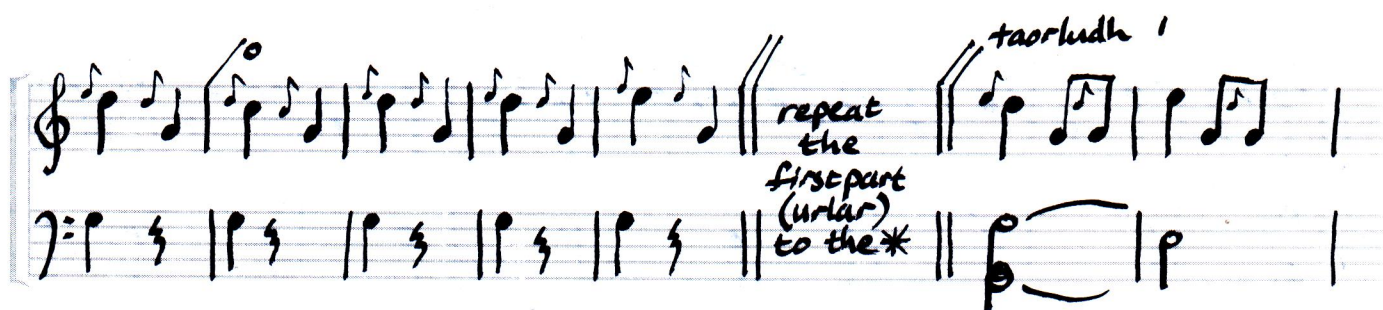 taorludh 1
repeat
the
first part
(urlar)
to the *